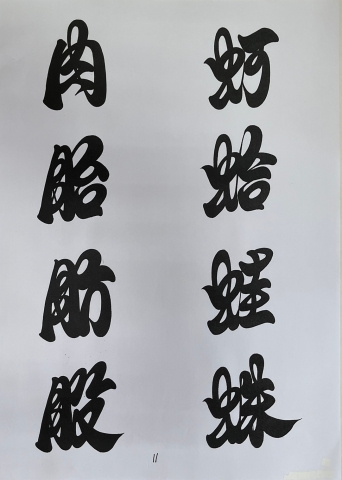 肉 蚵
胎 蛤
肪 蛙
股 蛛
11